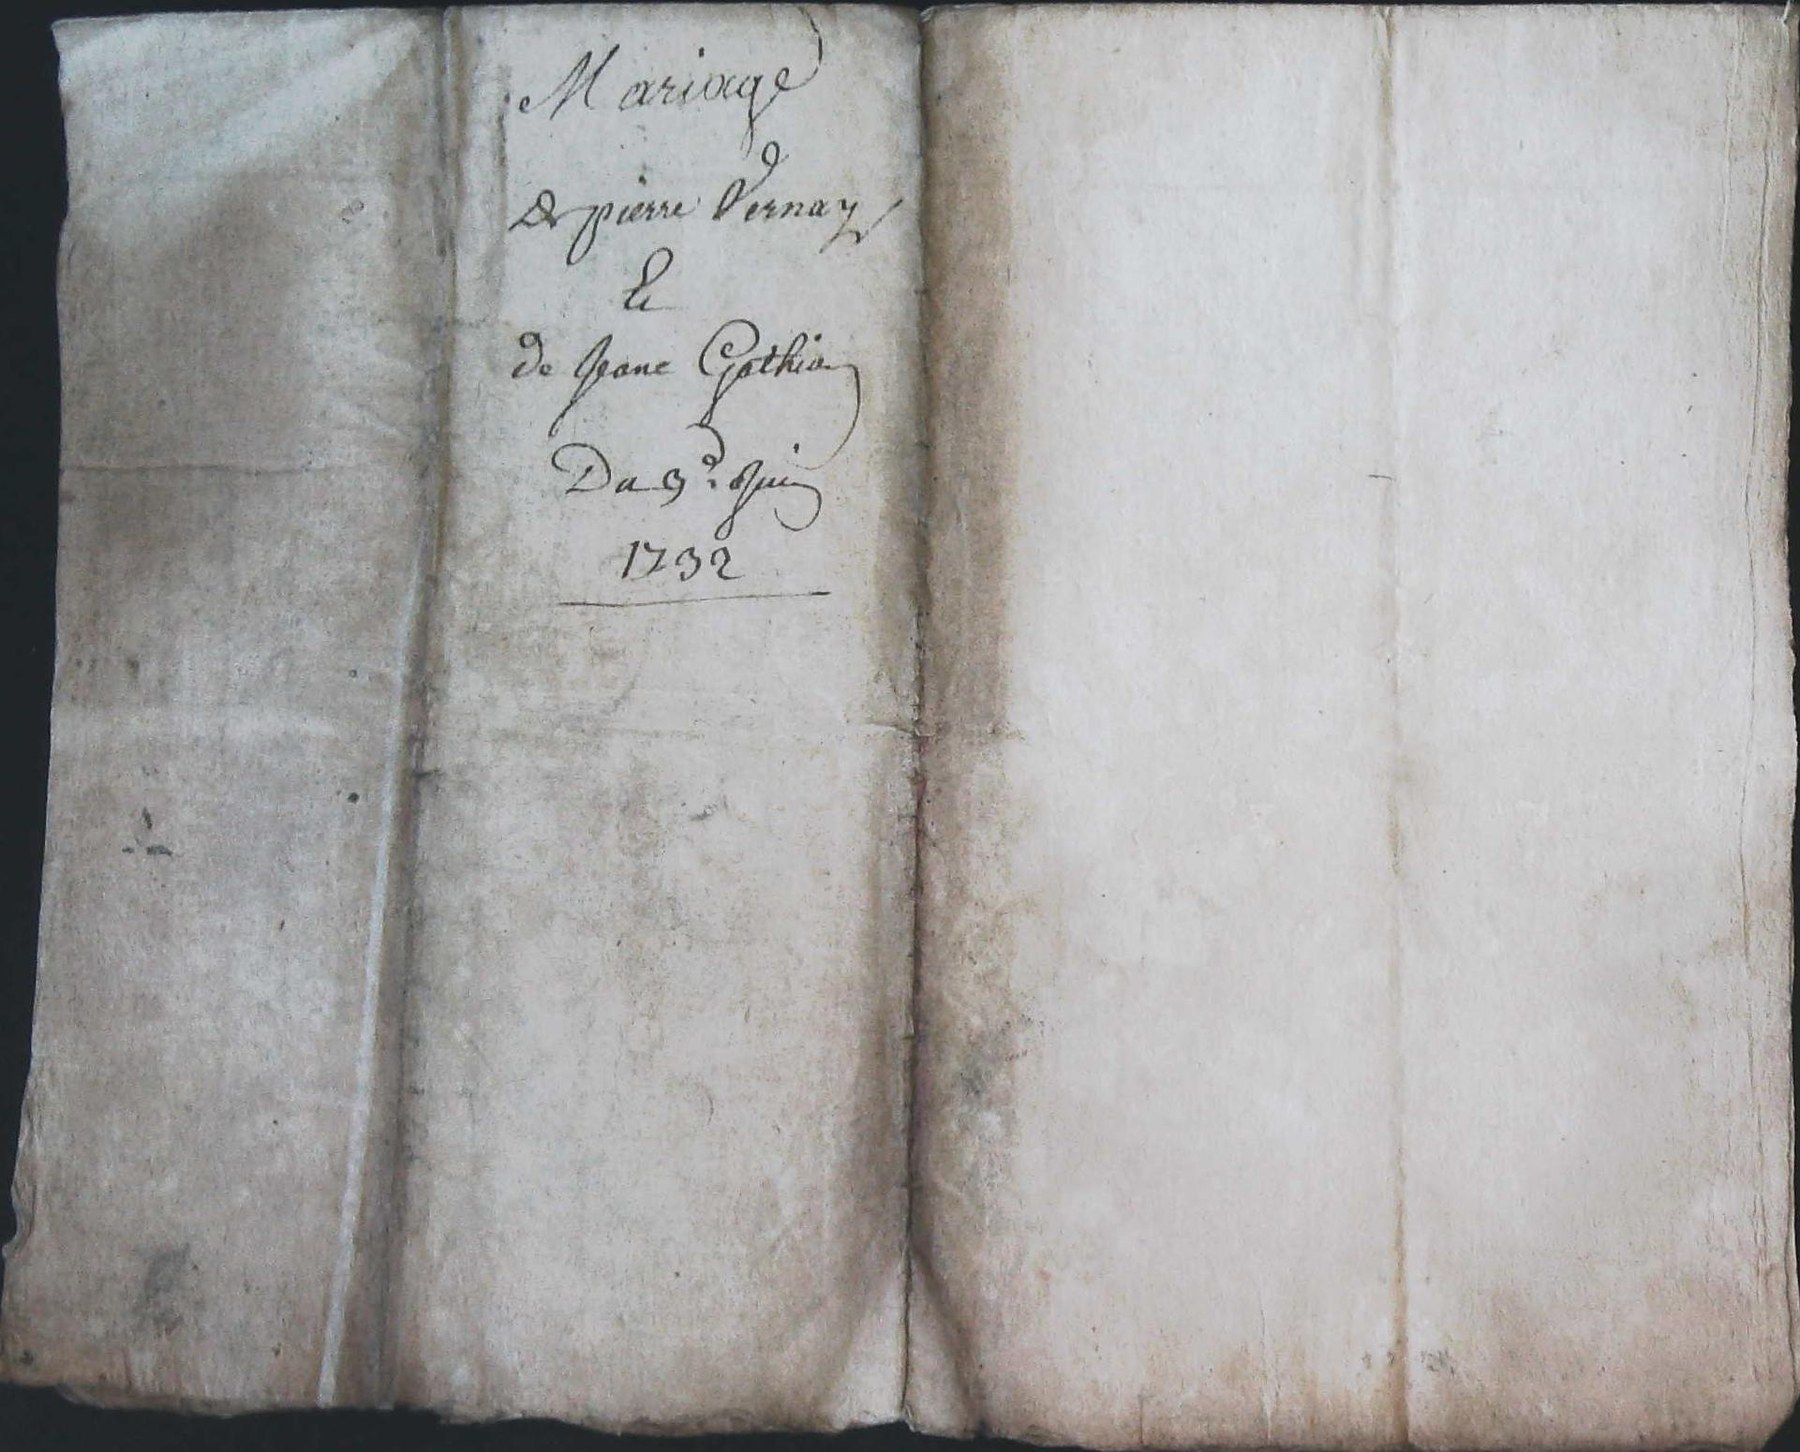 Mariage
De pierre Vernay
Et
de Jeane Gothion
Du 3e. Juin
1732